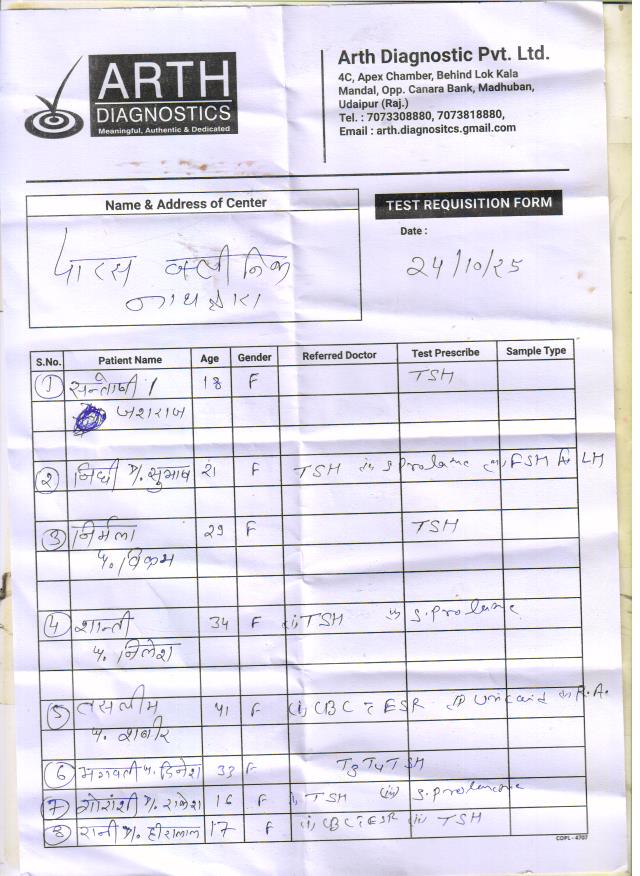 ARTH
DIAGNOSTICS
Meaningful, Authentic & Dedicated
Arth Diagnostic Pvt. Ltd.
4C, Apex Chamber, Behind Lok Kala
Mandal, Opp. Canara Bank, Madhuban,
Udaipur (Raj.)
Tel. : 7073308880, 7073818880,
Email : arth.diagnositcs.gmail.com
Name & Address of Center
पारस क्लीनिक
नाथद्वारा
TEST REQUISITION FORM
Date :
24/10/25
S.No. Patient Name Age Gender Referred Doctor Test Prescribe Sample Type
1 सन्तोषी / 18 F TSH
जशराज
2 निधी D/. सुभाष 21 F TSH (ii) S. FSH LH
3 निर्मला 29 F TSH
प. विक्रम
4 शान्ती 34 F (i) TSH (ii) S.
प. निलेश
5 तसलीम 41 F (i) CBC ESR R.A.
प. शबीर
6 भगवती प. दिनेश 33 F T3 T4 TSH
7 गोरांशी D/. राकेश 16 F i, TSH (ii) S.
8 रानी D/. हीरालाल 17 F (i) CBC ESR (ii) TSH
CDPL - 4707